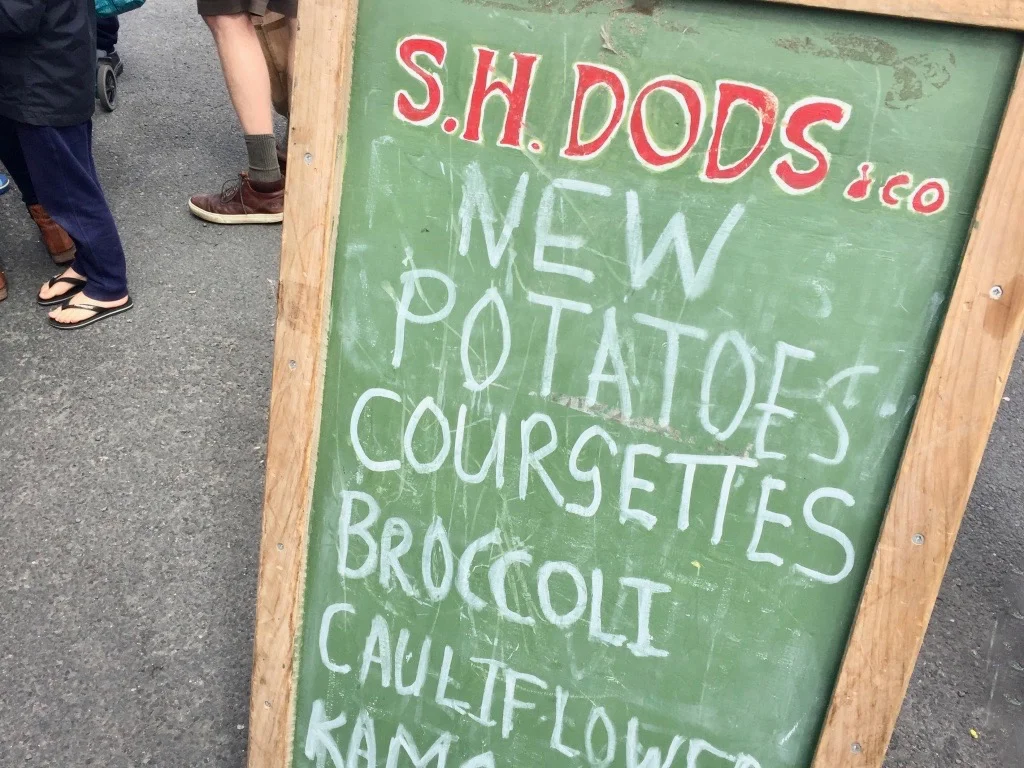 S.H. DODS & CO
NEW
POTATOES
COURGETTES
BROCCOLI
CAULIFLOWER